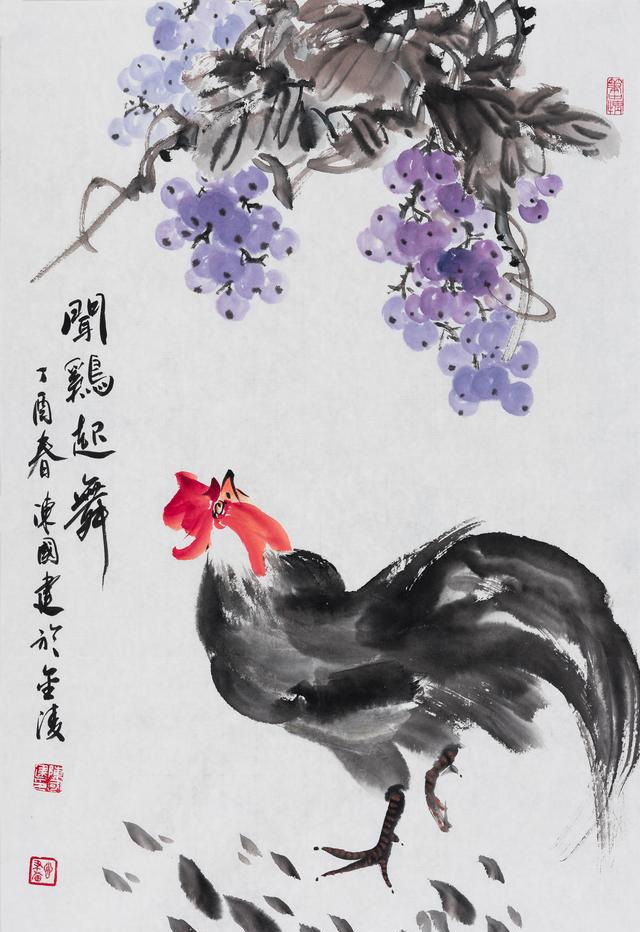 聞鷄起舞
丁酉春陳國建於金陵